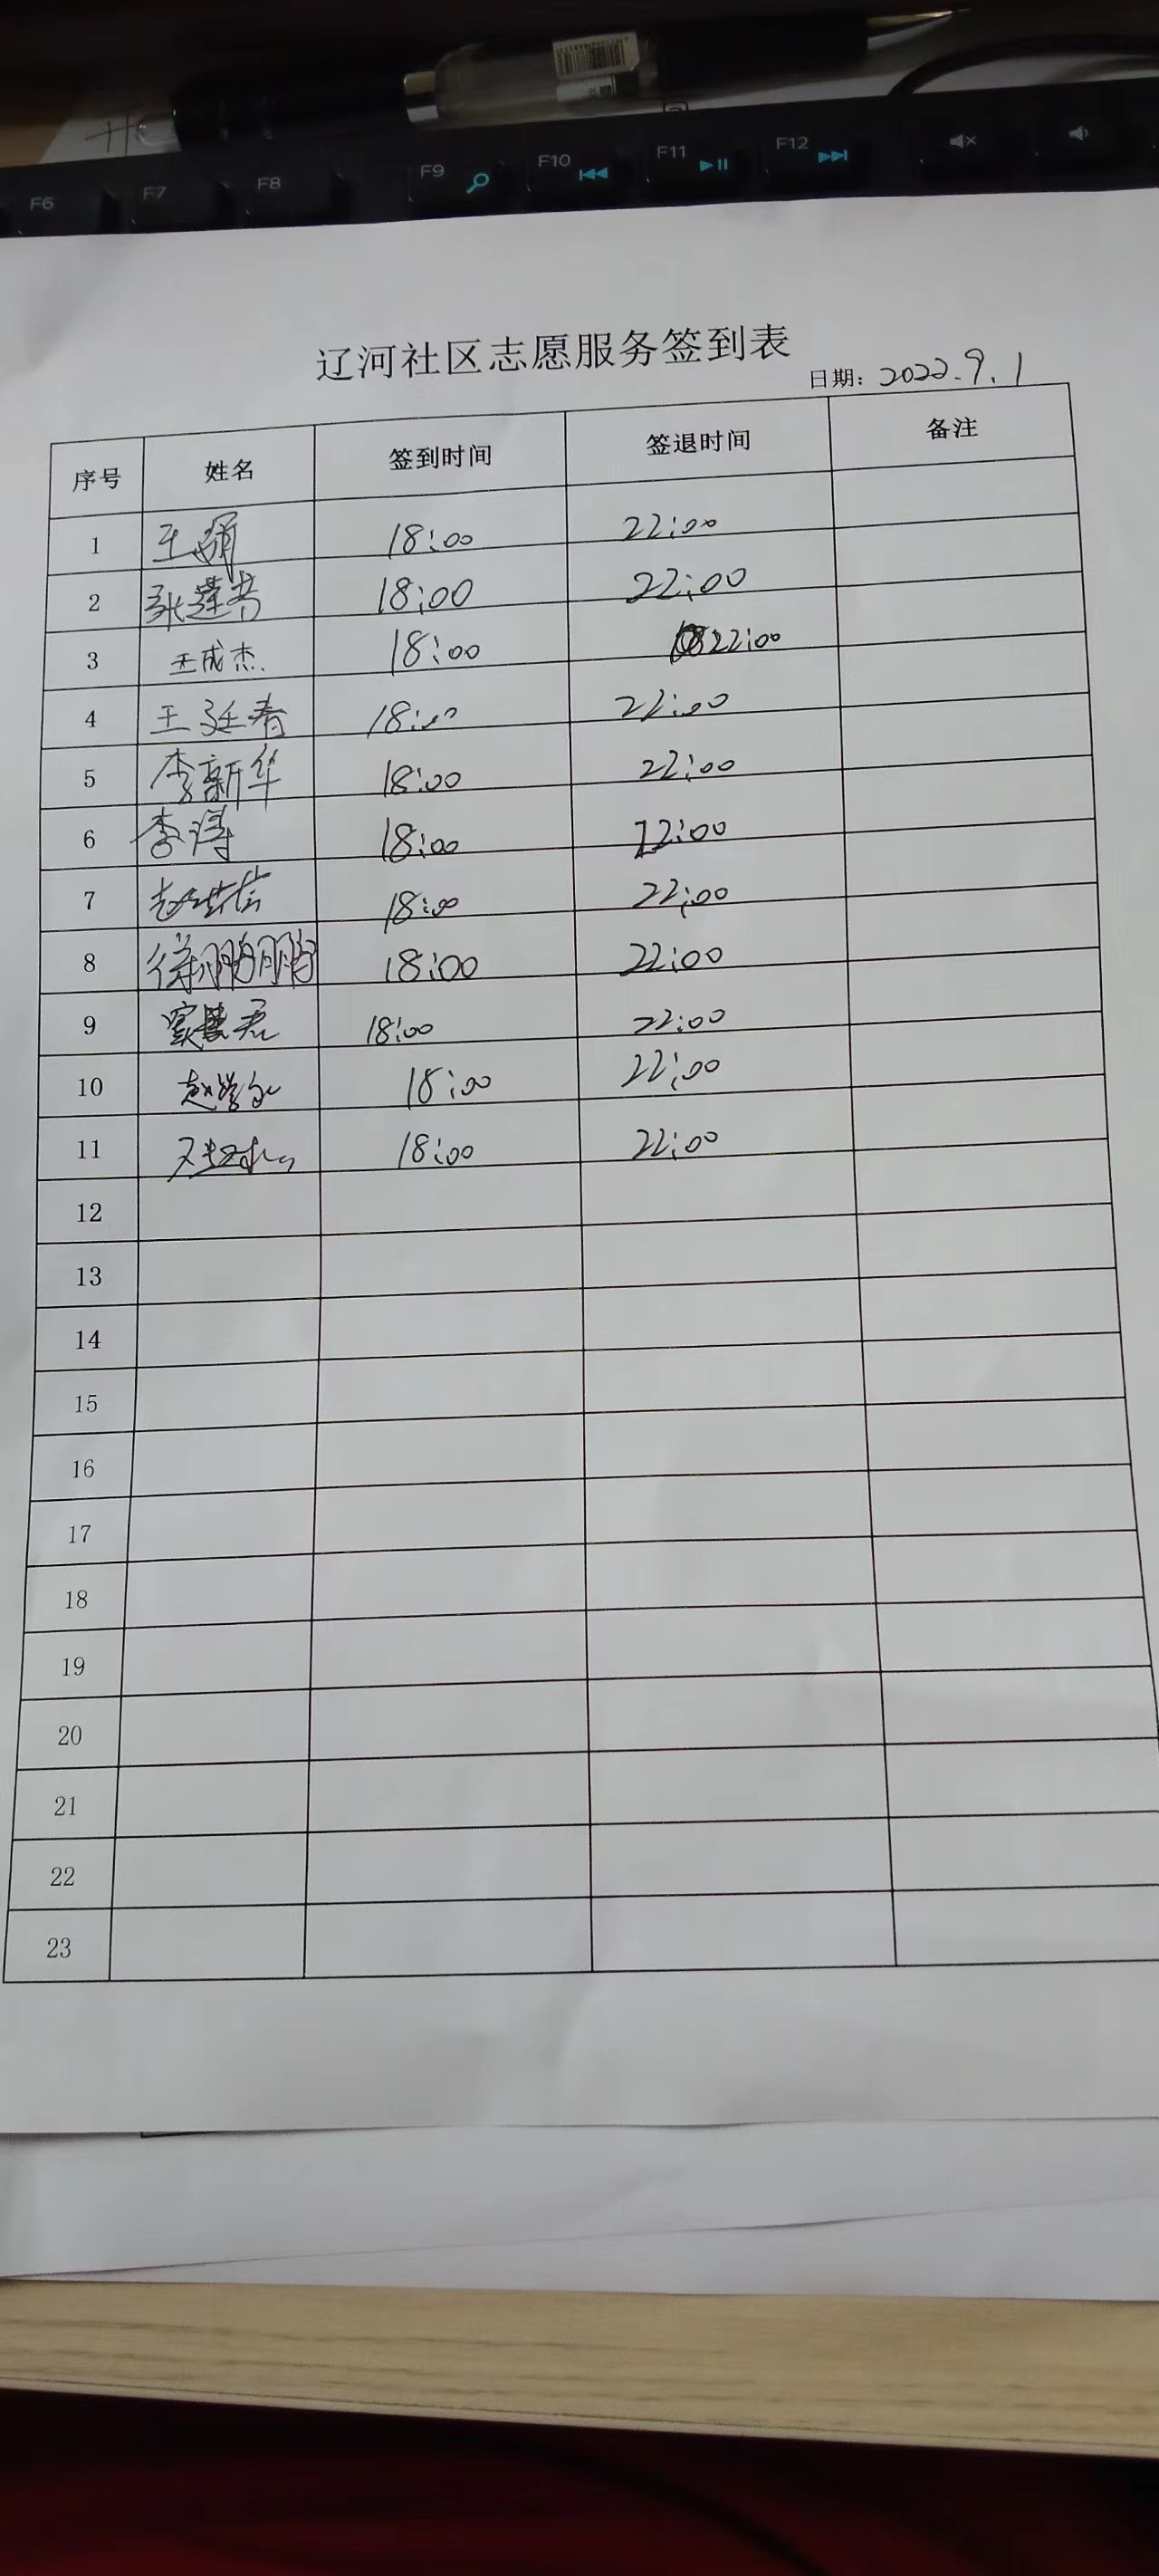 F6 F7 F8 F9 F10 F11 F12
辽河社区志愿服务签到表
日期: 2022.9.1
序号 姓名 签到时间 签退时间 备注
1 18:00 22:00
2 18:00 22:00
3 王成杰 18:00 22:00
4 王廷春 18:00 22:00
5 李新华 18:00 22:00
6 李涛 18:00 22:00
7 18:00 22:00
8 徐鹏鹏 18:00 22:00
9 18:00 22:00
10 18:00 22:00
11 18:00 22:00
12
13
14
15
16
17
18
19
20
21
22
23